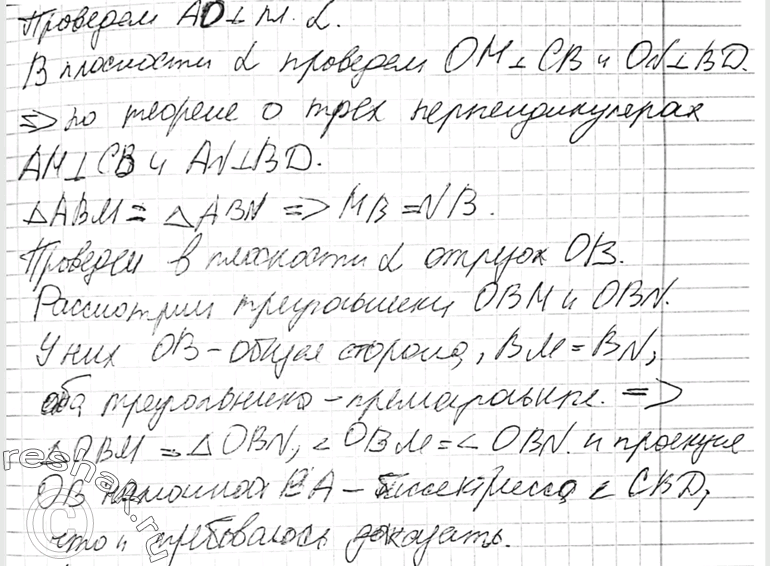 Проведем АО⊥пл. α.
В плоскости α проведем OM⊥CB и ON⊥BD.
=> по теореме о трех перпендикулярах
AM⊥CB и AN⊥BD.
△ABM = △ABN => MB = NB.
Проведем в плоскости α отрезок OB.
Рассмотрим треугольники OBM и OBN.
У них OB – общая сторона, BM = BN,
оба треугольника – прямоугольные. =>
△OBM = △OBN, ∠OBM = ∠OBN. и проекция
OB наклонной BA – биссектрисса ∠CBD,
что и требовалось доказать.
reshak.ru